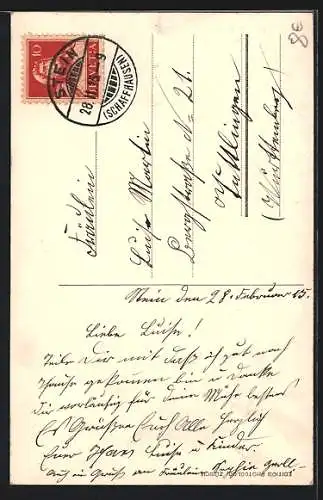 80
10
HELVETIA
STEIN
28.II.15. 9
(SCHAFFHAUSEN)
Fräulein
Luise Martin
Bergstraße No 21.
Tuttlingen
(Württemberg)
Stein den 28. Februar 15.
Liebe Luise!
Teile Dir mit daß ich gut nach
Hause gekommen bin u danke
Dir vorläufig für Deine Mühe bestens
Es Grüßen Euch Alle herzlich
Euer Hans Luise u Kinder.
Auch ein Gruß an Fräulein Sophie